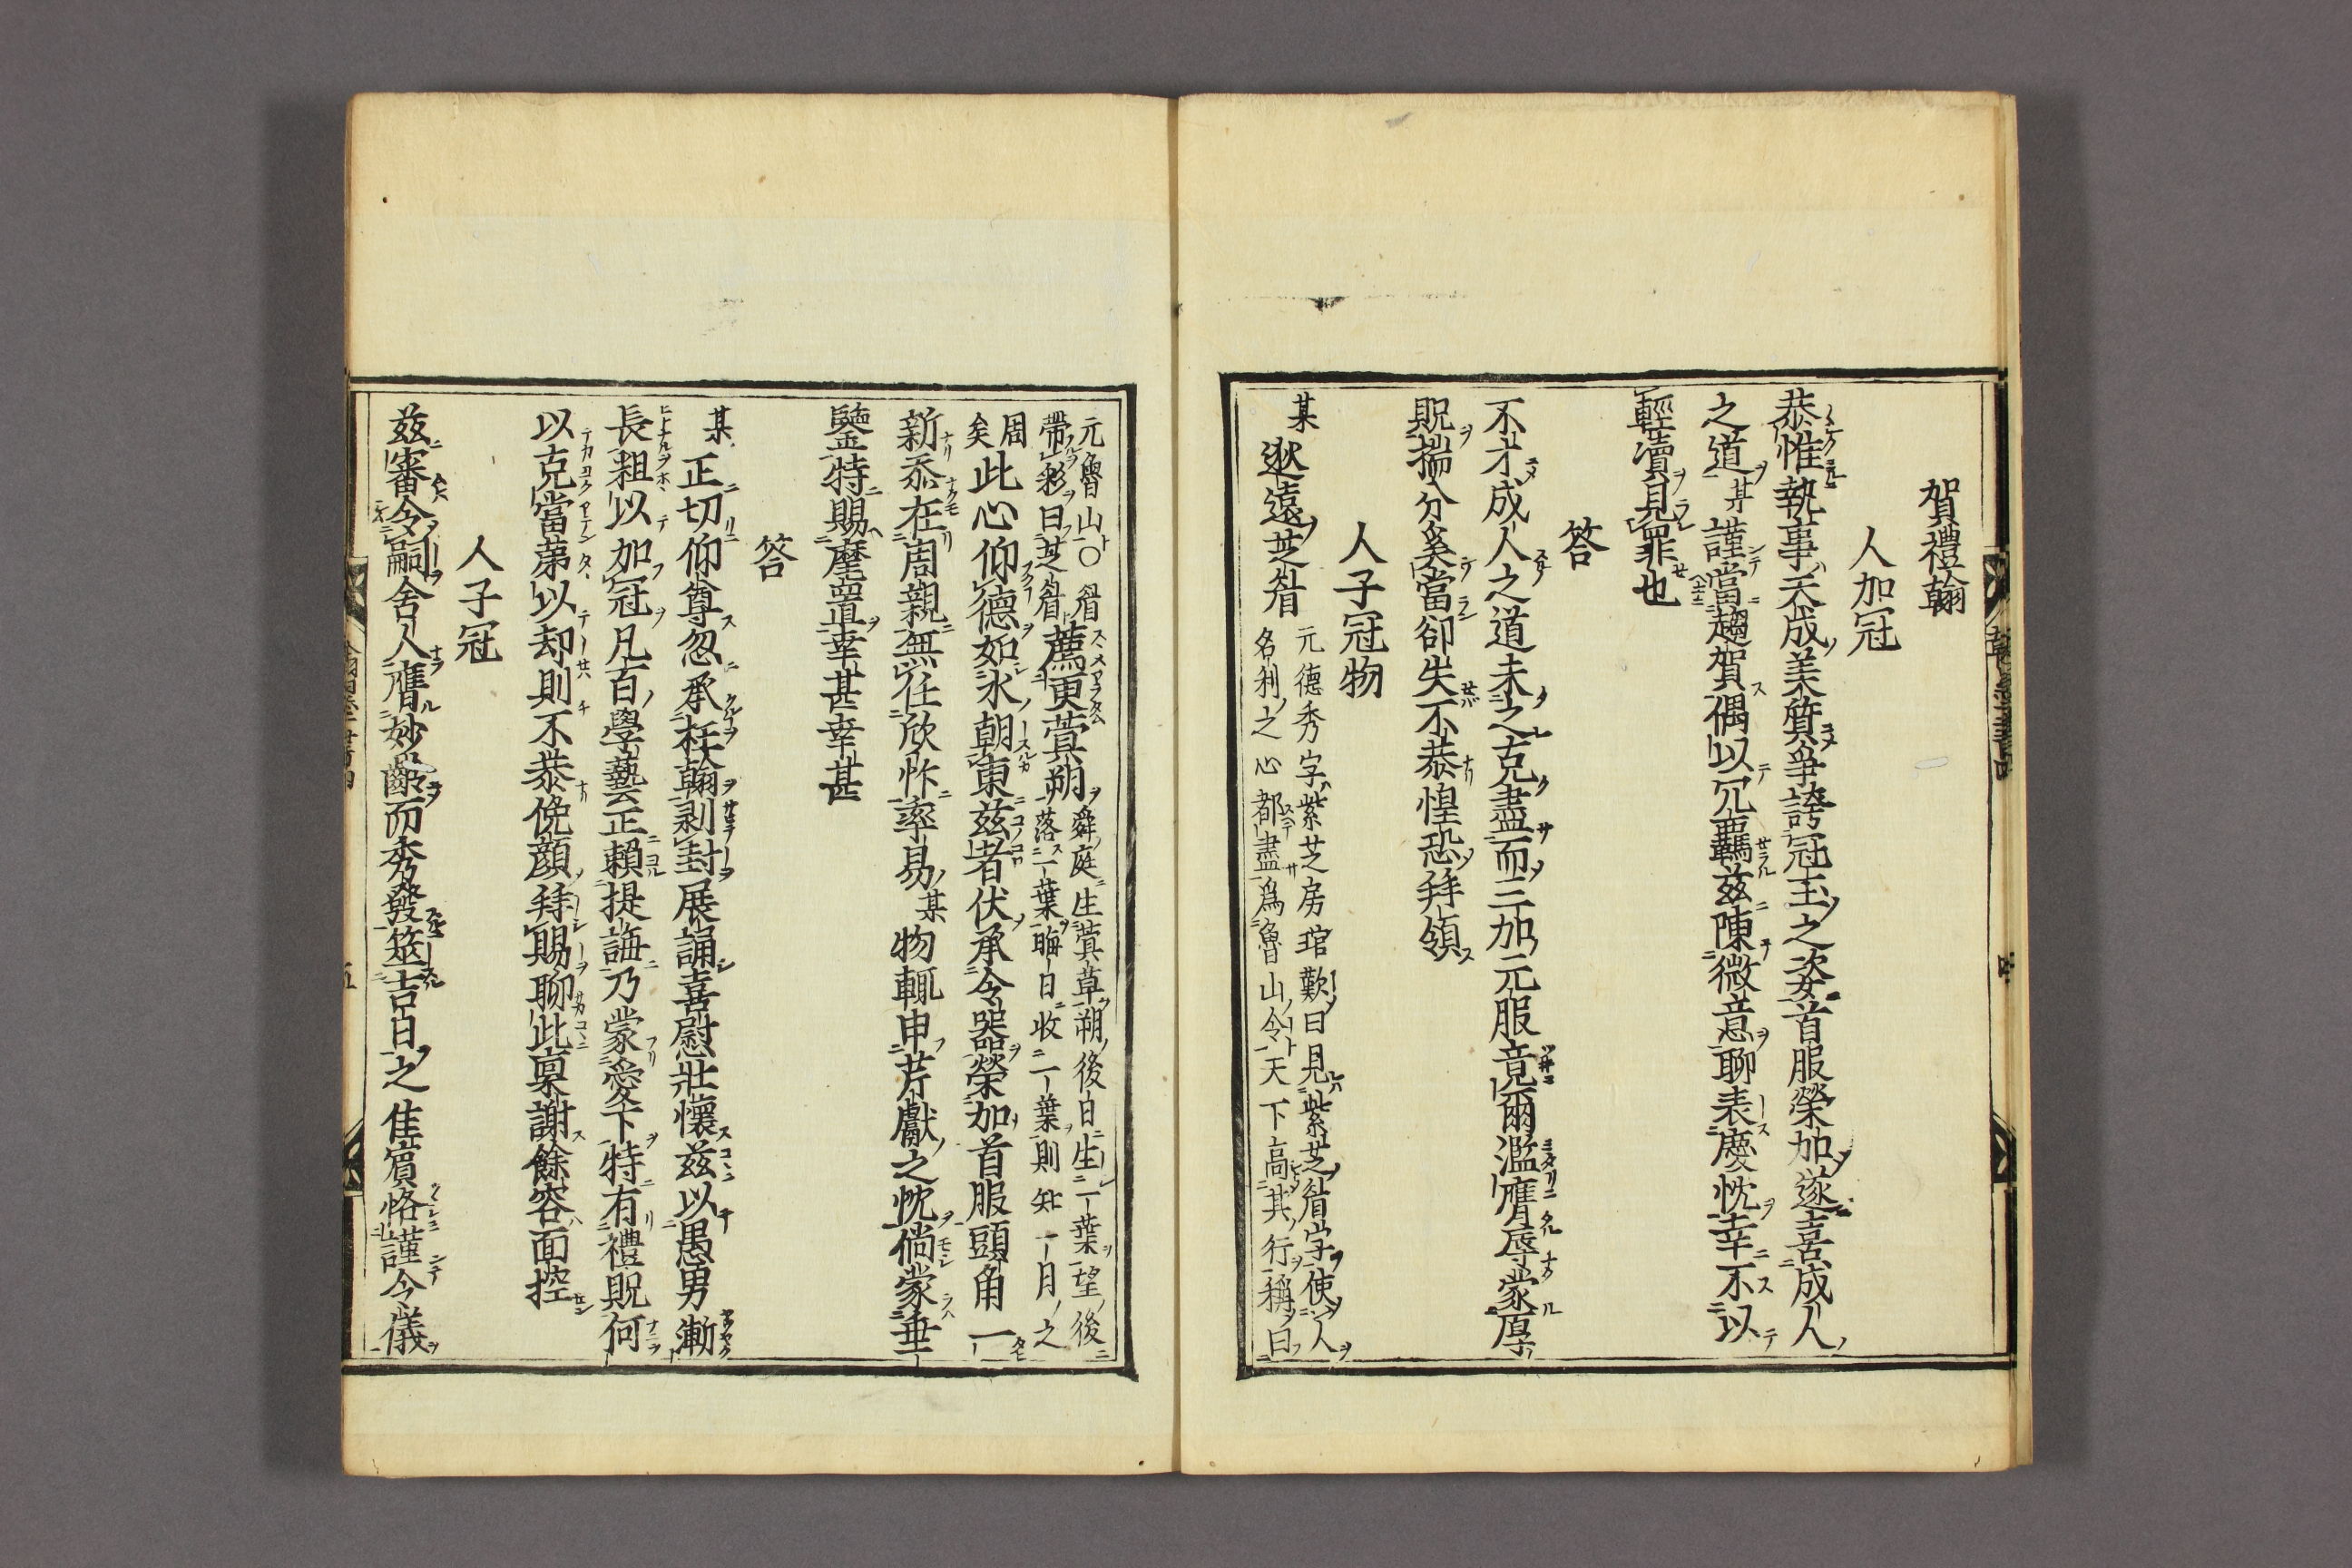 賀禮翰
人加冠
恭惟執事天成美質爭誇冠玉之姿首服榮加遂喜成人
之道某謹當趨賀偶以冗羈茲陳微意聊表慶忱幸不以
輕瀆見罪也
答
不才成人之道未之克盡而三加元服竟爾濫膺辱蒙厚
貺揣分奚當卻失不恭惶恐拜領
人子冠物
某逖遠芝眉元德秀字紫芝房琯歎曰見紫芝眉宇使人
名利之心都盡爲魯山令天下高其行稱曰
元魯山○眉薦更蓂朔舜庭生蓂草朔後日生一葉望後
帶彩曰芝眉落一葉晦日收一葉則知一月之
周矣此心仰德如水朝東茲者伏承令器榮加首服頭角一
新忝在周親無任欣忭率易某物輒申芹獻之忱倘蒙垂
鑒特賜麾置幸甚幸甚
答
某正切仰尊忽承枉翰剥封展誦喜慰壯懷茲以愚男漸
長粗以加冠凡百學藝正賴提誨乃蒙愛下特有禮貺何
以克當第以却則不恭俛顔拜賜聊此稟謝餘容面控
人子冠
茲審令嗣舍人膺妙齡而秀發筮吉日之佳賓恪謹令儀